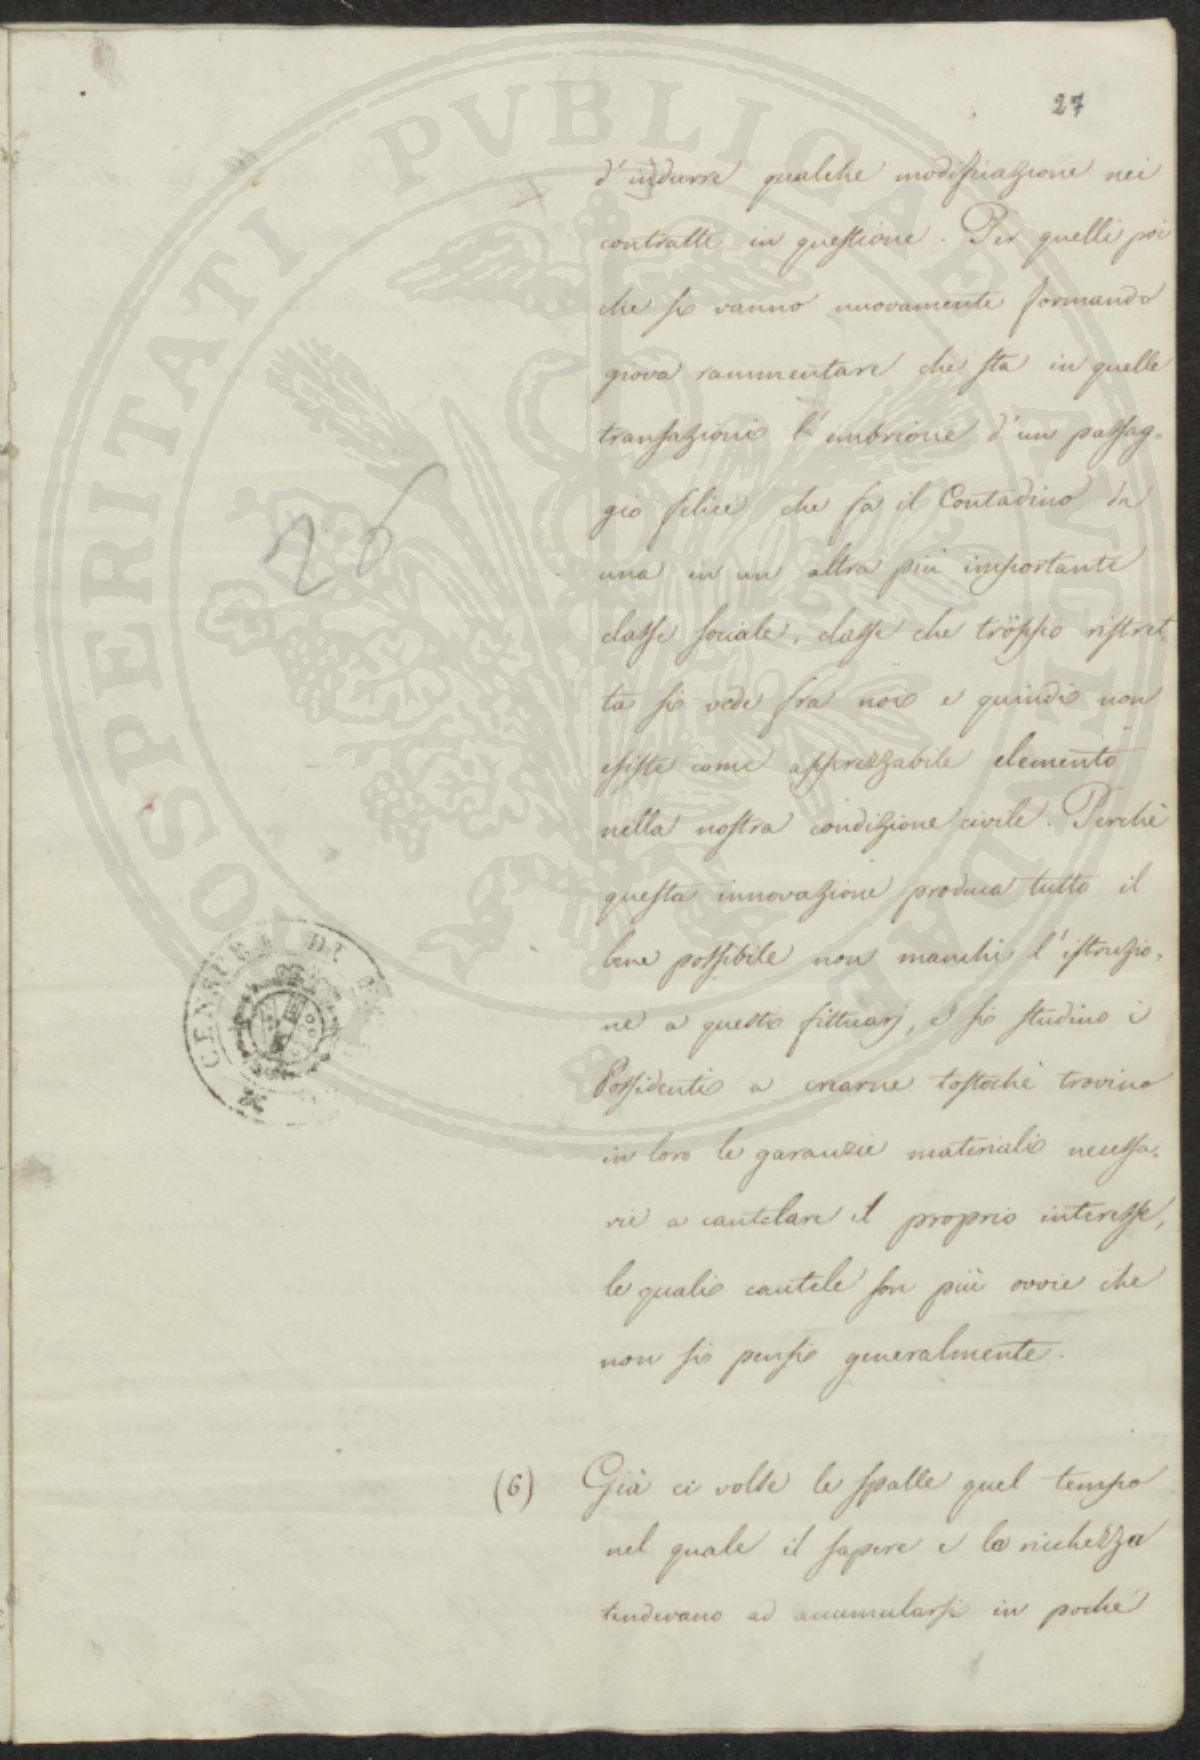 27
d'indurre qualche modificazione nei
contratti in questione. Per quelli poi
che si vanno nuovamente formando
giova rammentare che sta in quelle
transazioni l'embrione d'un passag-
gio felice che fa il Contadino da
una in un altra più importante
classe sociale, classe che troppo ristret-
ta si vede fra noi e quindi non
esiste come apprezzabile elemento
nella nostra condizione civile. Perchè
questa innovazione produca tutto il
bene possibile non manchi l'istruzio-
ne a questi fittuarj, e si studino i
Possidenti a crearne tostochè trovino
in loro le garanzie materiali necessa-
rie a cautelare il proprio interesse,
le quali cautele son più ovvie che
non si pensi generalmente.
26
(6) Già ci volse le spalle quel tempo
nel quale il sapere e la ricchezza
tendevano ad accumularsi in poche
PROSPERITATI PUBLICAE AUGENDAE